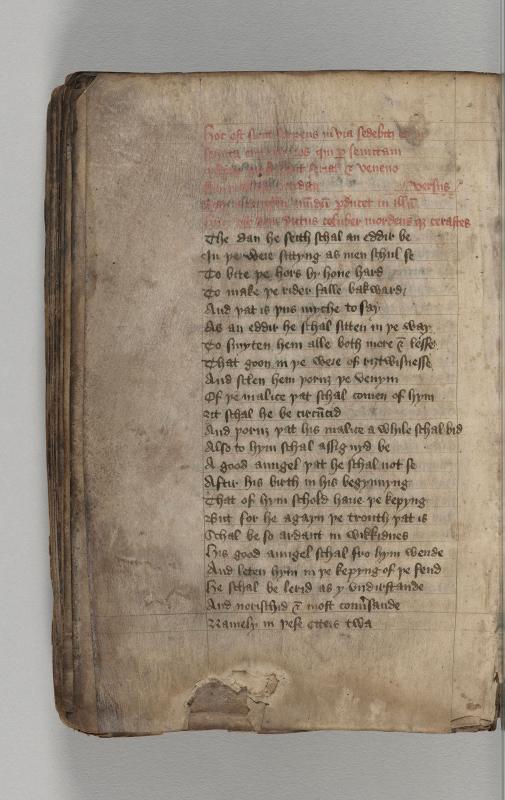 Hoc est sicut serpens in via sedebit
semita qui per semitam
veneno
versus
producet in
dictus coluber mordens qz cerastes
The dan he seith schal an eddir be
In þe weie sittyng as men schul se
To bite þe hors by hone hard
To make þe rider falle bakward
And þat is þus myche to say
As an eddir he schal sitten in þe way
To smyten hem alle both more & lesse
That goon in þe weie of riȝtwisnesse
And slen hem þoruȝ þe venym
Of þe malice þat schal comen of hym
ȝit schal he be circūcid
And þoruȝ þat his malice a while schal hid
Also to hym schal assignyd be
A good aungel þat he schal not se
Aftir his birth in his begynnyng
That of hym schold haue þe kepyng
But for he agayn þe trouth þat is
Schal be so ardant in wikkidnes
His good aungel schal fro hym wende
And leten hym in þe kepyng of þe fend
He schal be lerid as y vndirstande
And norischid & most conūsande
Namely in þese citees twa